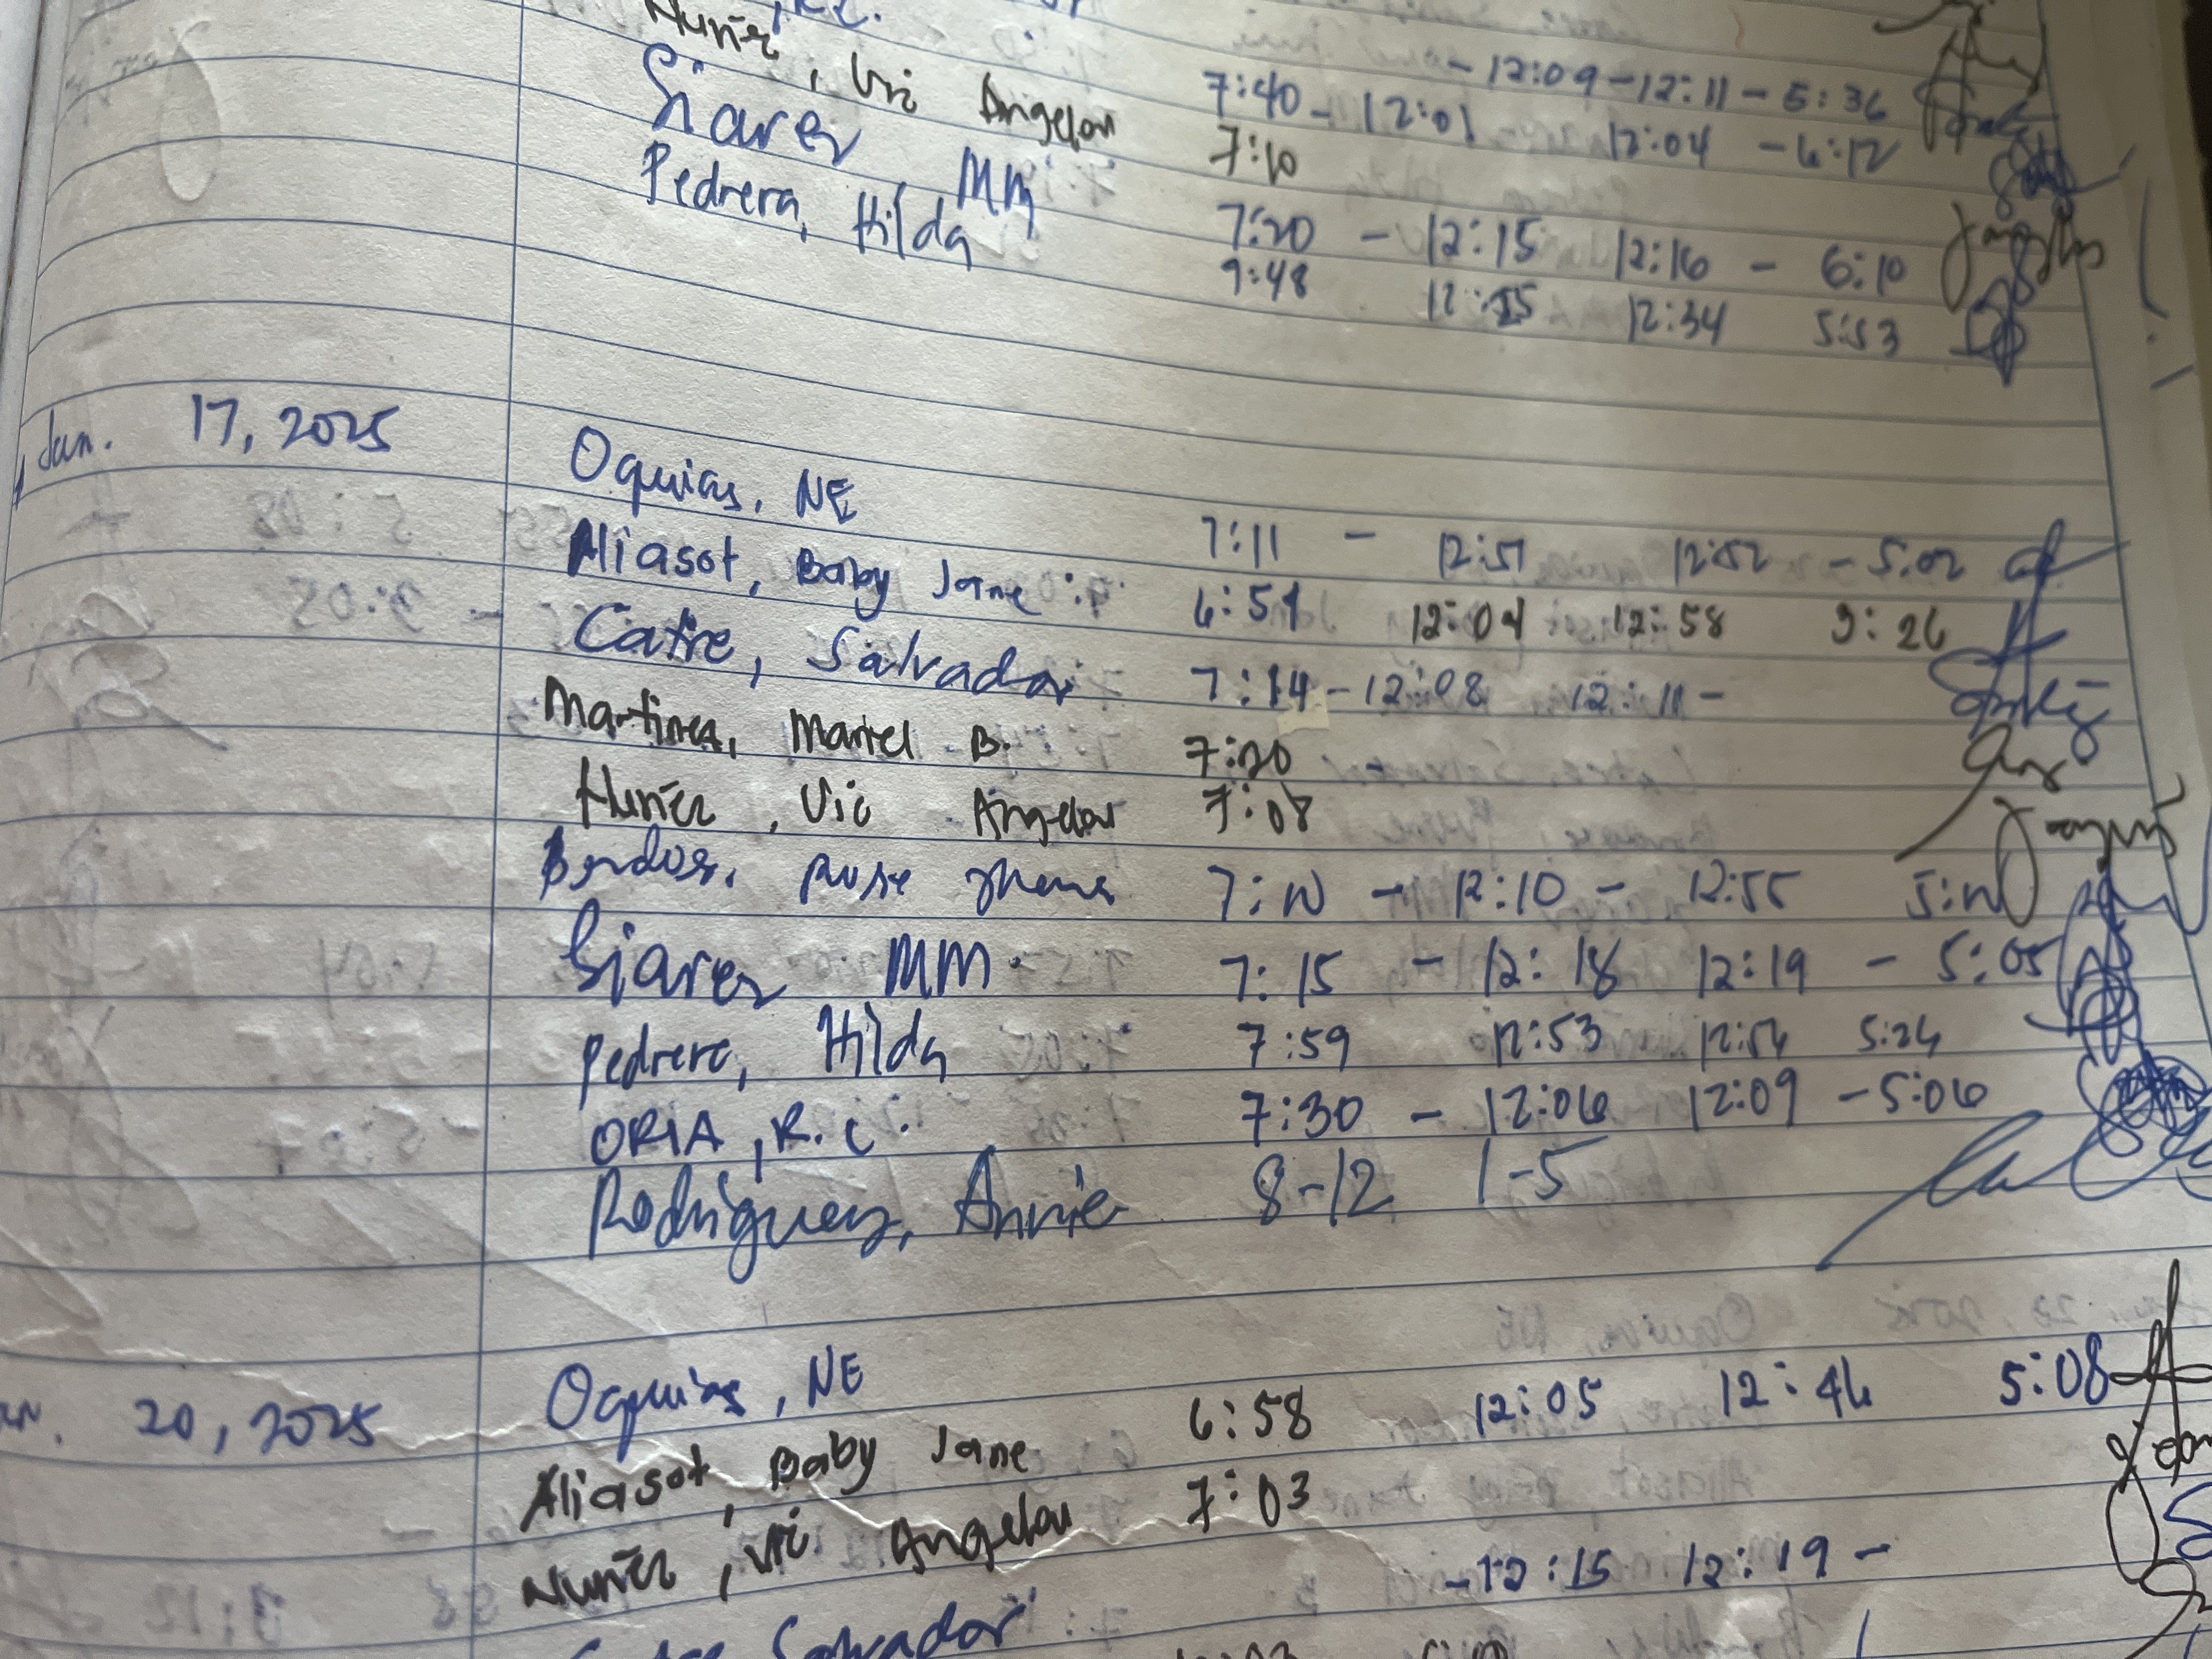 Nuñez, Vic Angelou 7:40 - 12:01 - 12:09 - 12:11 - 5:36
Siarez, MM 7:10 12:04 - 6:12
Pedrera, Hilda 7:20 - 12:15 12:16 - 6:10
9:48 12:34 5:53
Jan. 17, 2025 Oquias, NE 7:11 - 12:51 12:52 - 5:02
Aliasot, Baby Jane 6:59 12:04 12:58 3:26
Catre, Salvador 7:14 - 12:08 12:11 -
Martinez, Mariel B. 7:20
Nuñez, Vic Angelou 7:08
Rose 7:10 - 12:10 - 12:55
Siarez MM. 7:15 - 12:18 12:19 - 5:05
Pedrera, Hilda 7:59 12:53 12:54 5:24
ORIA, R.C. 7:30 - 12:06 12:09 - 5:06
Rodriguez, Annie 8-12 1-5
20, 2025 Oquias, NE
Aliasot, Baby Jane 6:58 12:05 12:46 5:08
Nuñez, Vic Angelou 7:03
Salvador - 12:15 12:19 -